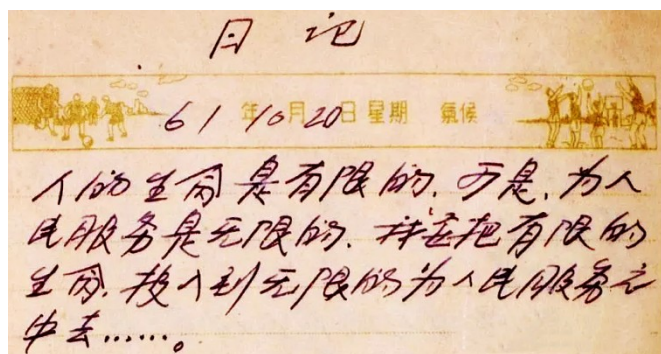 日记
61年10月20日星期 氣候
人的生命是有限的，可是，为人
民服务是无限的，我要把有限的
生命，投入到无限的为人民服务之
中去……。